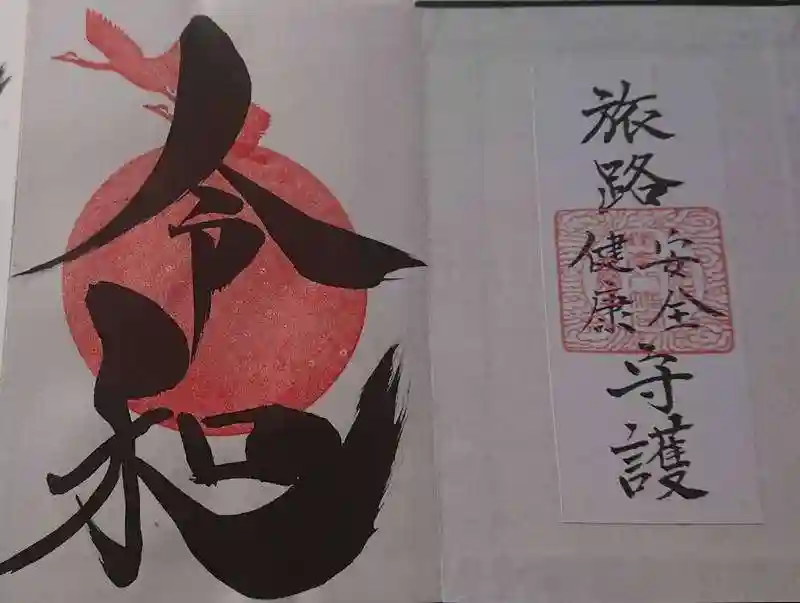 旅路
安全
健康
守護
令和